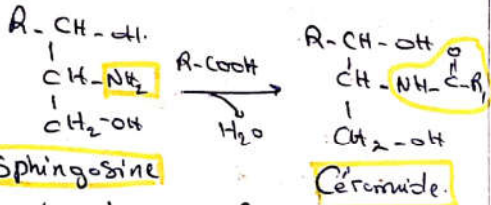 R-CH-OH.
CH-NH₂
CH₂-OH
Sphingosine
R-COOH
H₂O
R-CH-OH
O
CH-NH-C-R₁
CH₂-OH
Céramide.